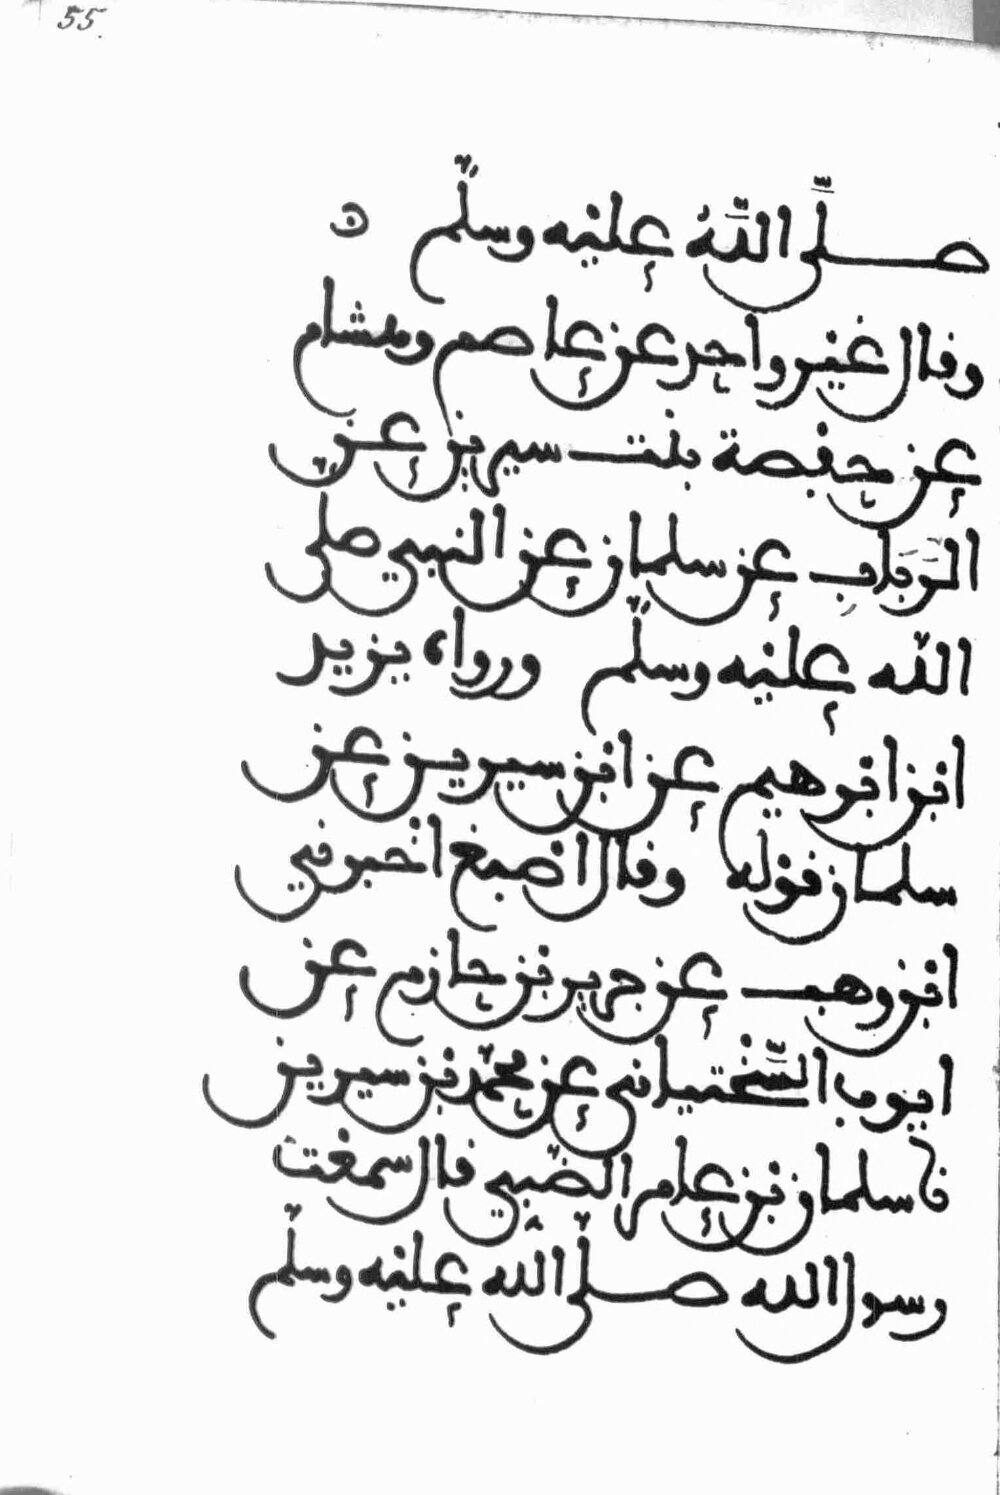 55.
صلى الله عليه وسلم ن
وقال غير واحد عن عاصم وهشام
عن حفصة بنت سيرين عن
الرباب عن سلمان عن النبي صلى
الله عليه وسلم ورواه يزيد
ابن ابرهيم عن ابن سيرين عن
سلمان قوله وقال اصبغ اخبرني
ابن وهب عن جرير بن حازم عن
ايوب السختياني عن محمد بن سيرين
نا سلمان بن عامر الضبي قال سمعت
رسول الله صلى الله عليه وسلم